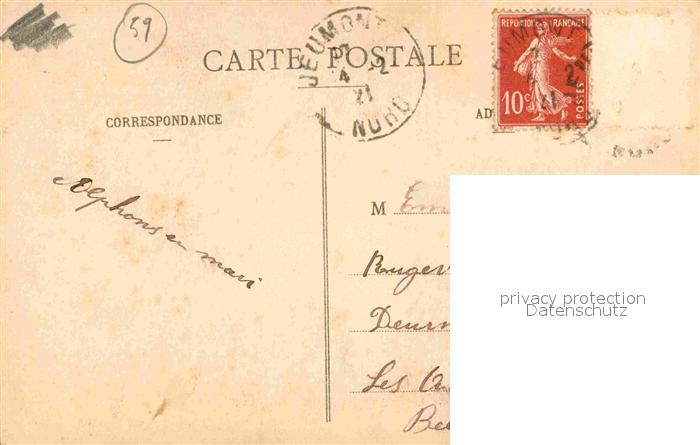 59
CARTE POSTALE
JEUMONT
4 - 2
21
NORD
REPUBLIQUE FRANÇAISE
10c
POSTES
CORRESPONDANCE
AD
Alphons en mari
M Em
Ruger
Deurn
Les
Be
privacy protection
Datenschutz